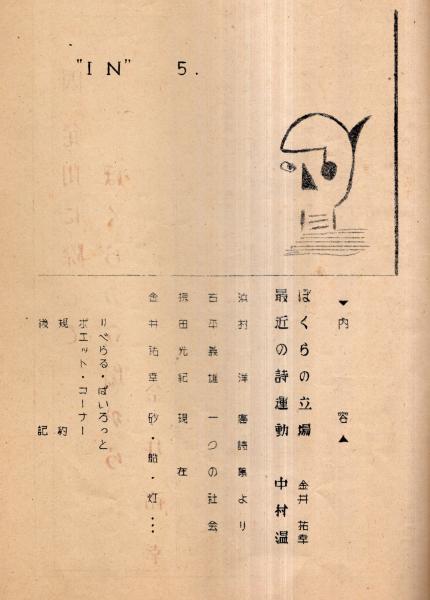 "IN" 5.
▼内容▲
ぼくらの立場 金井祐幸
最近の詩運動 中村温
浜村洋 詩集より
古平義雄 一つの社会
振田光紀 現在
金井祐幸 砂・船・灯・・・
りべらる・ぱいろっと
ポエット・コーナー
規約
後記